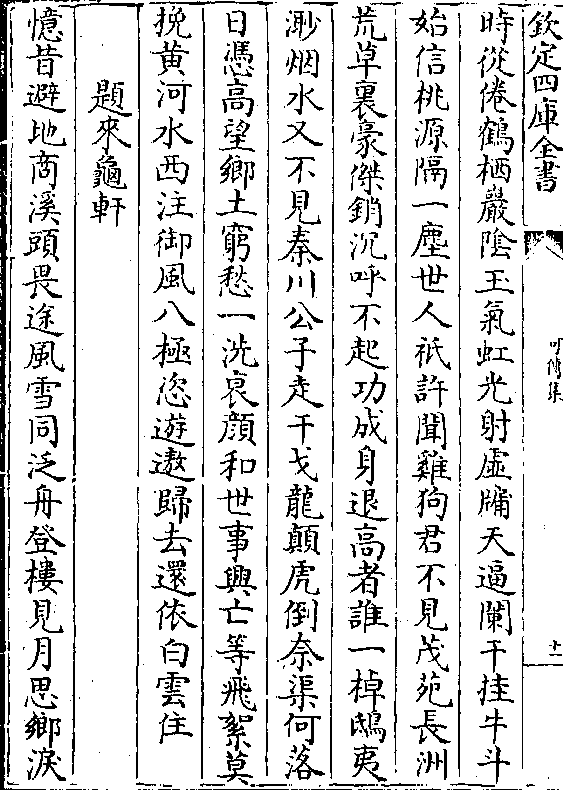 欽定四庫全書
可傳集
十一
時從倦鶴栖巖陰玉氣虹光射虛牗天逼闌干挂牛斗
始信桃源隔一塵世人祇許聞雞狗君不見茂苑長洲
荒草裏豪傑銷沉呼不起功成身退高者誰一棹鴟夷
渺烟水又不見秦川公子走干戈龍顛虎倒奈渠何落
日憑高望鄉土窮愁一洗衰顔和世事興亡等飛絮莫
挽黄河水西注御風八極恣遊遨歸去還依白雲住
題來龜軒
憶昔避地商溪頭畏途風雪同泛舟登樓見月思鄉淚